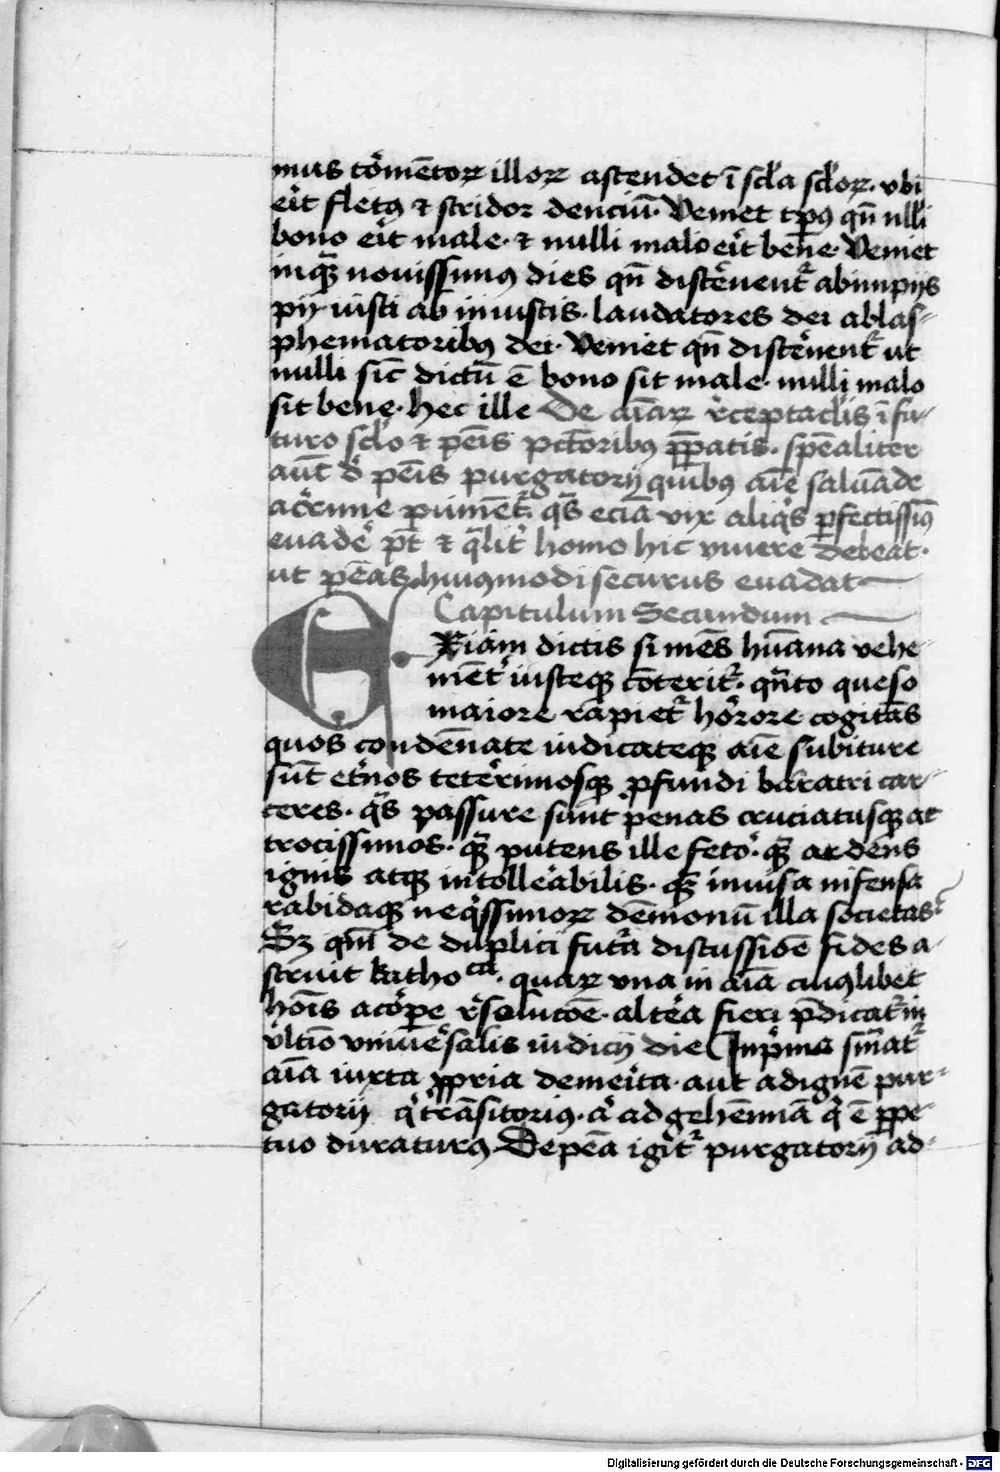 mus tōmētoꝝ illoꝝ ascendet ī scl̄a scl̄oꝝ. vbi
eīt fletꝰ ⁊ stridor denciū. Veniet tp̄ꝰ qn̄ nlli
bono eīt male. ⁊ nulli malo eīt bene. Veniet
inq̄ nouissimꝰ dies qn̄ discernent̄ ab impijs
pij iusti ab iniustis. laudatores dei a blas-
phematoribꝰ dei. Veniet qn̄ discernent̄ ut
nulli sic̄ dictū ē bono sit male. nulli malo
sit bene. hec ille De aīaꝝ r̄ceptacl̄is ī fu-
turo scl̄o ⁊ pēis pcc̄oribꝰ p̄paratis. spēaliter
aut̄ d̄ pēis purgatorij quibꝰ aīe saluāde
acrime puniēt̄ q̄s eciā vix aliq̄s ꝑfectissimꝰ
euadē pt̄ ⁊ q̄lit̄ homo hic viuere debeat.
ut pēas huiꝰmodi securus euadat
Capitulum Secundum
EXiam dictis si mēs hūana vehe-
mēt̄ iusteqꝫ cōterit̄. qn̄to queso
maiore rapiet̄ horrore cogitās
quos condēnate iudicateqꝫ aīe subiture
sūt et̄nos teterrimosqꝫ ꝓfundi baratri car-
ceres. q̄s passure sunt penas cruciatusqꝫ at
trocissimos. q̄ꝫ putens ille feto᷑. q̄ꝫ ardens
ignis atqꝫ intollerabilis. q̄ꝫ inuisa infensa
rabidaqꝫ neq̄ssimoꝝ demonū illa societas
Sꝫ qm̄ de duplici futura discussiōe fides a-
struit katho ca. quaꝝ vna in aīa cuiꝰlibet
hoīs a corpe r̄solucōe. altera fieri p̄dicat̄ in
vltīo vniuersalis iudicij die Inprima sm̄at̄
aīa iuxta ꝓpria demeīta. aut ad ignē pur-
gatorij q̄ t̄nsitorius. a᷑ ad gehennā q̄ ē ꝑpe-
tuo duraturꝰ De pēa igit̄ purgatorij ad-
Digitalisierung gefördert durch die Deutsche Forschungsgemeinschaft - DFG